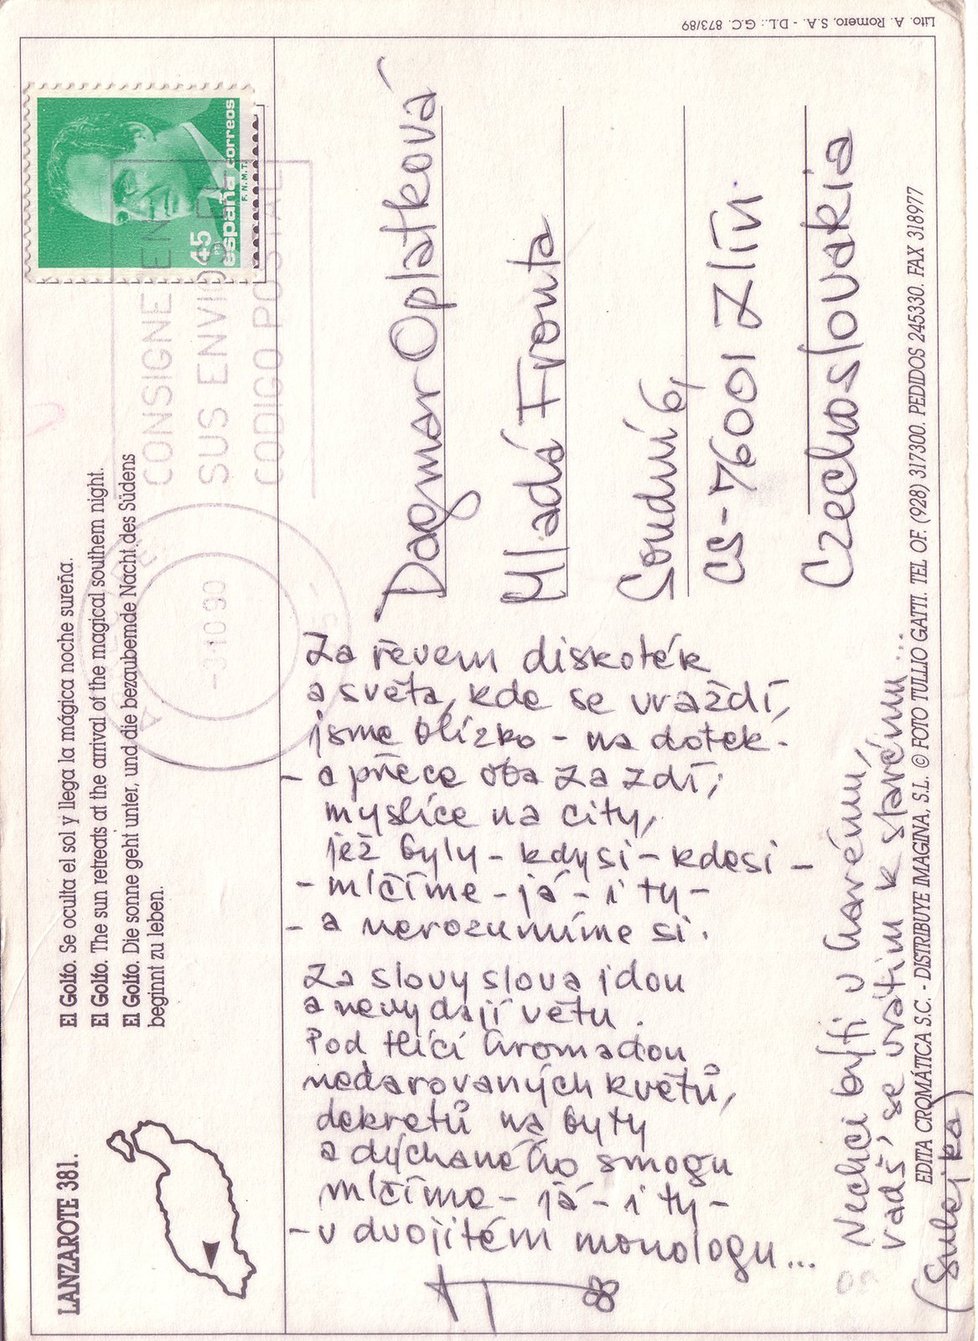 Lito. A. Romero. S.A. - D.L.: G.C. 873/89
LANZAROTE 381.
El Golfo. Se oculta el sol y llega la mágica noche sureña.
El Golfo. The sun retreats at the arrival of the magical southern night.
El Golfo. Die sonne geht unter, und die bezaubernde Nacht des Südens
beginnt zu leben.
45
españa correos
F.N.M.T.
CONSIGNE EN
SUS ENVIOS EL
CODIGO POSTAL
-3 10 90
Dagmar Oplatková
Mladá Fronta
Soudní 6,
CS-76001 Zlín
Czechoslovakia
Za řevem diskoték
a světa, kde se vraždí,
jsme blízko - na dotek -
- a přece oba za zdí;
myslíce na city,
jež byly - kdysi - kdesi -
- mlčíme - já - i ty -
- a nerozumíme si.
Za slovy slova jdou
a nevydají větu.
Pod tlící hromadou
nedarovaných květů,
dekretů na byty
a dýchaného smogu
mlčíme - já - i ty -
- v dvojitém monologu...
Nechci býti v harému,
vrátím k starému...
(Sulejka)
EDITA CROMÁTICA S.C. - DISTRIBUYE IMAGINA, S.L. © FOTO TULLIO GATTI. TEL OF. (928) 317300. PEDIDOS 245330. FAX 318977